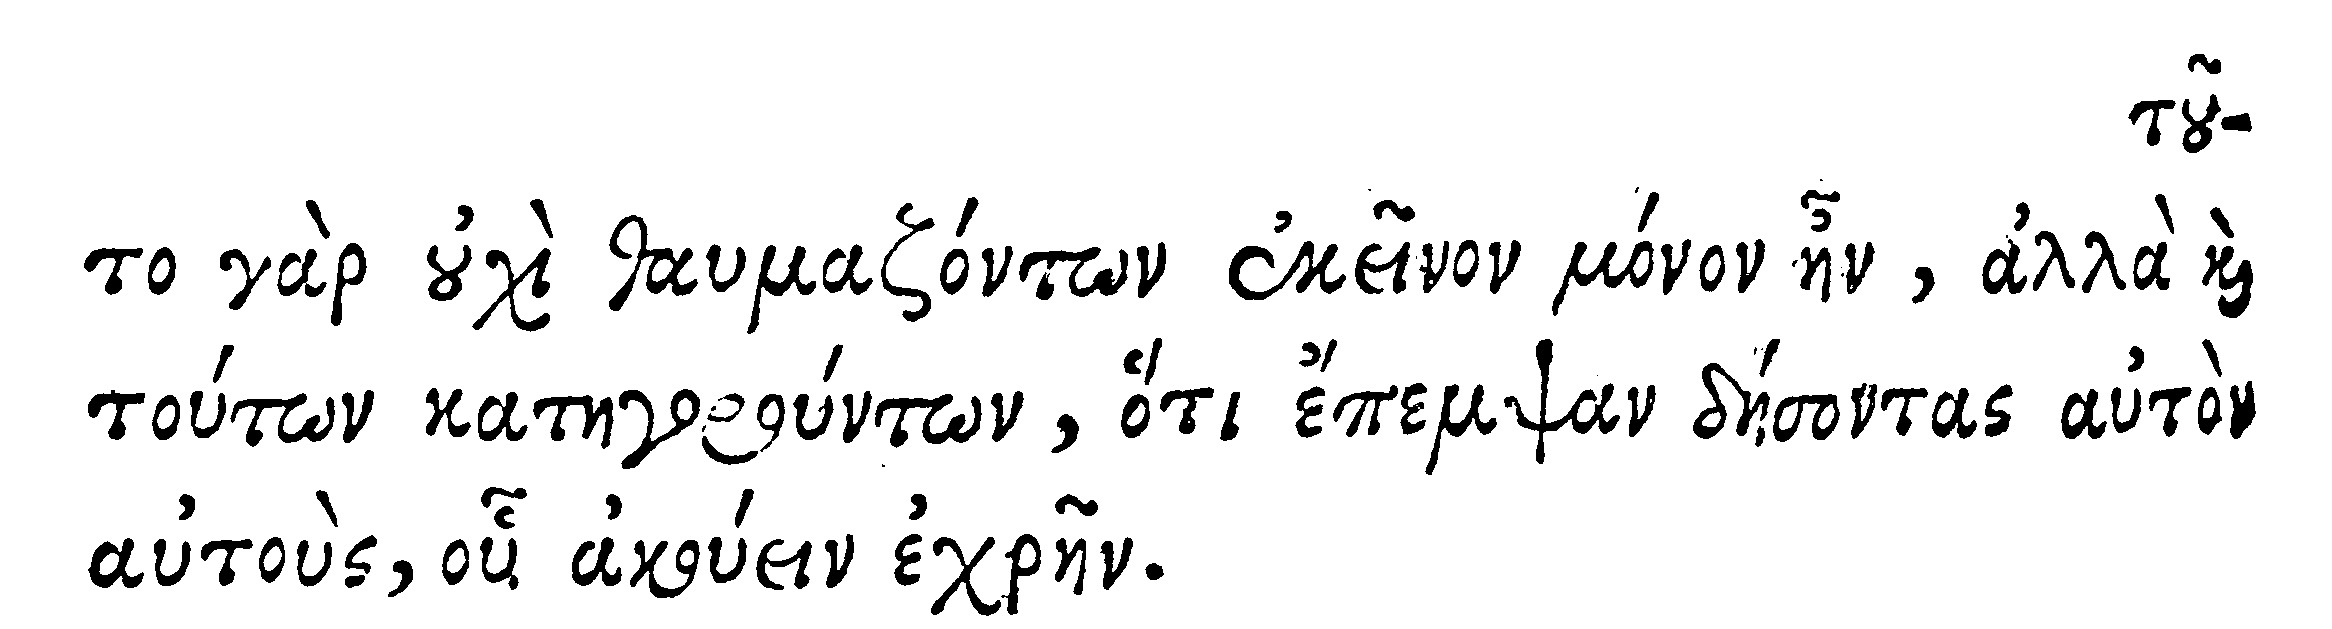 τȣ͂-
το γὰρ ȣ̓χὶ θαυμαζόντων ἐκεῖνον μόνον ἦν, ἀλλὰ ϗ̀
τούτων κατηγορούντων, ὅτι ἔπεμψαν δήσοντας αὐτὸν
αὐτοὺς, οὗ ἀκούειν ἐχρῆν.